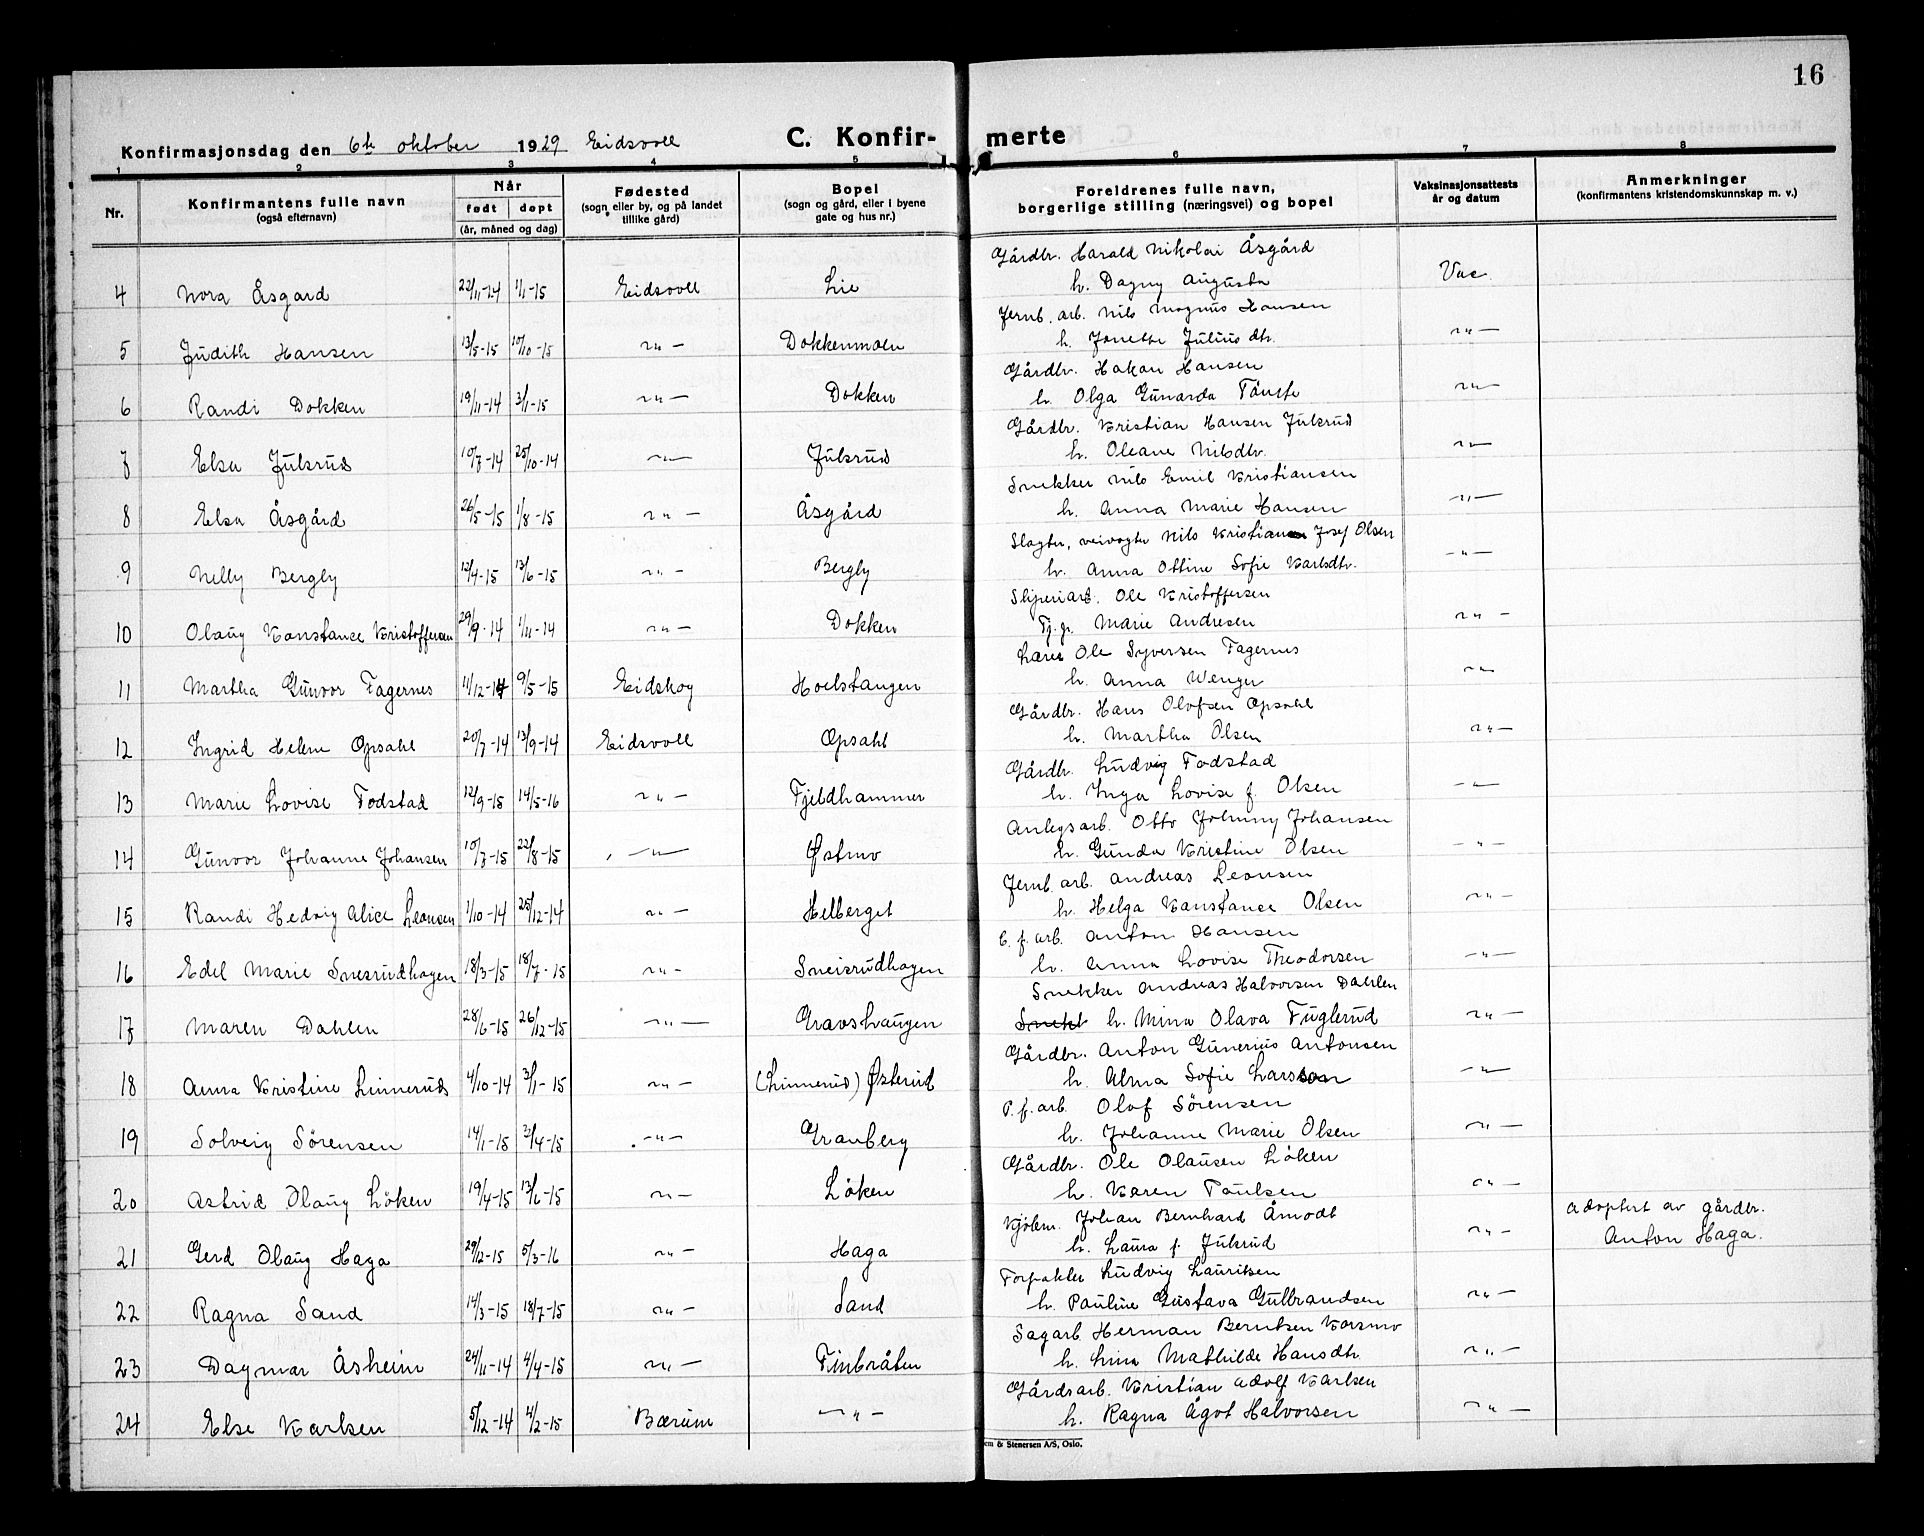 16
Konfirmasjonsdag den 6te oktober 1929 Eidsvoll C. Konfir- merte
1 2 3 4 5 6 7 8
Nr. Konfirmantens fulle navn (også efternavn) Når født døpt (år, måned og dag) Fødested (sogn eller by, og på landet tillike gård) Bopel (sogn og gård, eller i byene gate og hus nr.) Foreldrenes fulle navn, borgerlige stilling (næringsvei) og bopel Vaksinasjonsattests år og datum Anmerkninger (konfirmantens kristendomskunnskap m. v.)
Gårdbr. Harald Nikolai Åsgård
4 Nora Åsgard 22/11-14 1/1-15 Eidsvoll Lie h. Dagny Augusta Vac.
Jernb. arb. Nils Magnus Hansen
5 Judith Hansen 13/5-15 10/10-15 -"- Dokkenmoen h. Jonette Juliusdtr. -"-
Gårdbr. Hakon Hansen
6 Randi Dokken 19/11-14 3/1-15 -"- Dokken h. Olga Gunarda Tönste -"-
Gårdbr. Kristian Hansen Julsrud
7 Elsa Julsrud 10/7-14 25/10-14 -"- Julsrud h. Oleane Nilsdtr. -"-
Snekker Nils Emil Kristiansen
8 Elsa Åsgård 26/5-15 1/8-15 -"- Åsgård h. Anna Marie Hansen -"-
Slagter, veivogter Nils Kristian Josef Olsen
9 Nelly Bergly 12/4-15 13/6-15 -"- Bergly h. Anna Ottine Sofie Karlsdtr. -"-
Sliperiarb. Ole Kristoffersen
10 Olaug Konstance Kristoffersen 29/9-14 1/11-14 -"- Dokken Tj.p. Marie Andresen -"-
Lærer Ole Syversen Fagernes
11 Martha Gunvor Fagernes 11/12-14 9/5-15 Eidskog Hoelstangen h. Anna Wenger -"-
Gårdbr. Hans Olofsen Opsahl
12 Ingrid Helene Opsahl 20/7-14 13/9-14 Eidsvoll Opsahl h. Martha Olsen -"-
Gårdbr. Ludvig Fodstad
13 Marie Lovise Fodstad 12/9-15 14/5-16 -"- Fjeldhammer h. Inga Lovise f. Olsen -"-
Anlegsarb. Otto Johnny Johansen
14 Gunvor Johanne Johansen 10/7-15 22/8-15 -"- Østmo h. Gunda Kristine Olsen -"-
Jernb. arb. Andreas Leonsen
15 Randi Hedvig Alice Leonsen 1/10-14 25/12-14 -"- Helberget h. Helga Konstance Olsen -"-
C. f. arb. Anton Hansen
16 Edel Marie Snesrudhagen 18/3-15 18/7-15 -"- Sneisrudhagen h. Anna Lovise Theodorsen -"-
Snekker Andreas Halvorsen Dahlen
17 Maren Dahlen 28/6-15 26/12-15 -"- Gravshaugen Snekk h. Mina Olava Fuglerud -"-
Gårdbr. Anton Gunerius Antonsen
18 Anna Kristine Linnerud 4/10-14 3/1-15 -"- (Linnerud) Østerud h. Alma Sofie Larsson -"-
P. f. arb. Olof Sörensen
19 Solveig Sörensen 14/1-15 3/4-15 -"- Granberg h. Johanne Marie Olsen -"-
Gårdbr. Ole Olausen Löken
20 Astrid Olaug Löken 19/4-15 13/6-15 -"- Löken h. Karen Paulsen -"-
Kjölem. Johan Bernhard Åmodt Adoptert av gårdbr.
21 Gerd Olaug Haga 29/12-15 5/3-16 -"- Haga h. Laura f. Julsrud -"- Anton Haga.
Forpakter Ludvig Lauritsen
22 Ragna Sand 14/3-15 18/7-15 -"- Sand h. Pauline Gustava Gulbrandsen -"-
Sagarb. Herman Berntsen Korsmo
23 Dagmar Åsheim 24/11-14 4/4-15 -"- Finbråten h. Lina Mathilde Hansdtr. -"-
Gårdsarb. Kristian Adolf Karlsen
24 Else Karlsen 5/12-14 4/2-15 Bærum -"- h. Ragna Ågot Halvorsen -"-
em & Stenersen A/S, Oslo.